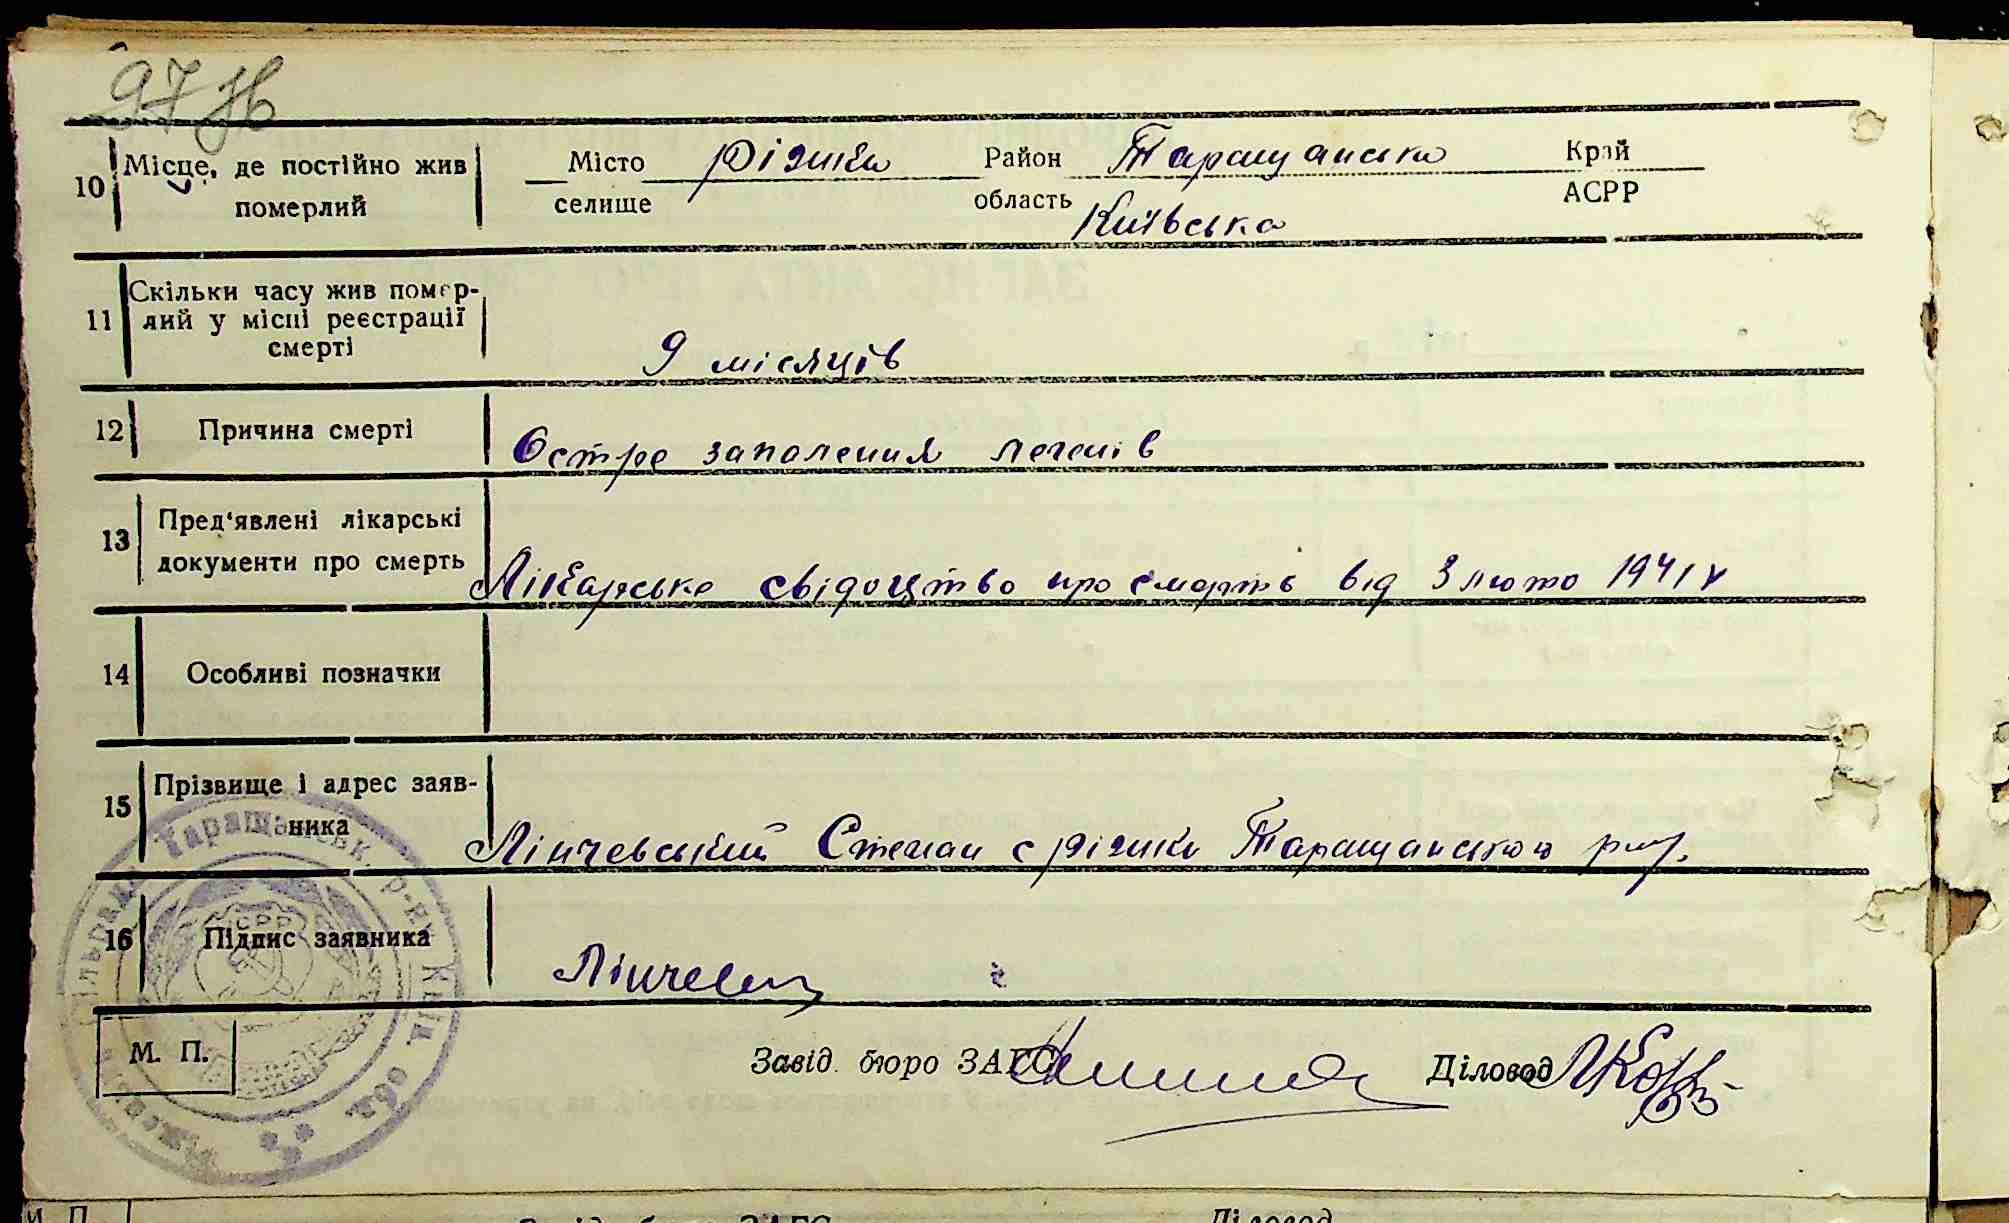 97
10 Місце, де постійно жив померлий
Місто селище Ріжки Район Таращанська Край
область Київська АСРР
11 Скільки часу жив помер-
лий у місці реєстрації
смерті
9 місяців
12 Причина смерті
Остре заполения легенів
13 Пред'явлені лікарські
документи про смерть
Лікарське свідоцтво про смерть від 3 люто 1941 р
14 Особливі позначки
15 Прізвище і адрес заяв-
ника
Лінчевський Степан с Ріжки Таращанського
16 Підпис заявника
М. П.
Завід. бюро ЗАГС
Діловод
Таращанськ. р-ну Київ. обл.
М. П.
Завід. бюро ЗАГС
Діловод